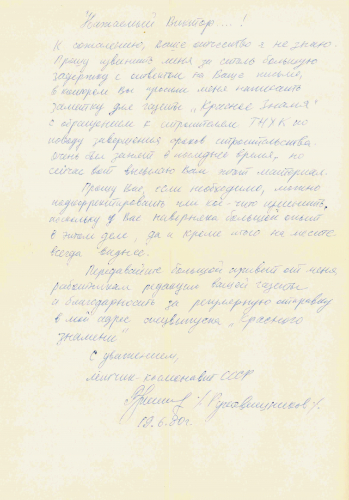 Уважаемый Виктор....!
К сожалению, Ваше отчество я не знаю.
Прошу извинить меня за столь большую
задержку с ответом на Ваше письмо,
в котором Вы просили меня написать
заметку для газеты „Красное Знамя"
с обращением к строителям ТНХК по
поводу завершения сроков строительства.
Очень был занят в последнее время, но
сейчас вот высылаю Вам этот материал.
Прошу Вас, если необходимо, можно
подкорректировать или кое-что изменить,
поскольку у Вас наверняка больший опыт
в этом деле, да и кроме этого на месте
всегда виднее.
Передавайте большой привет от меня
работникам редакции Вашей газеты
и благодарность за регулярную отправку
в мой адрес спецвыпуска „Красного
знамени"
С уважением,
летчик-космонавт СССР
/Рукавишников/.
19.6.80г.